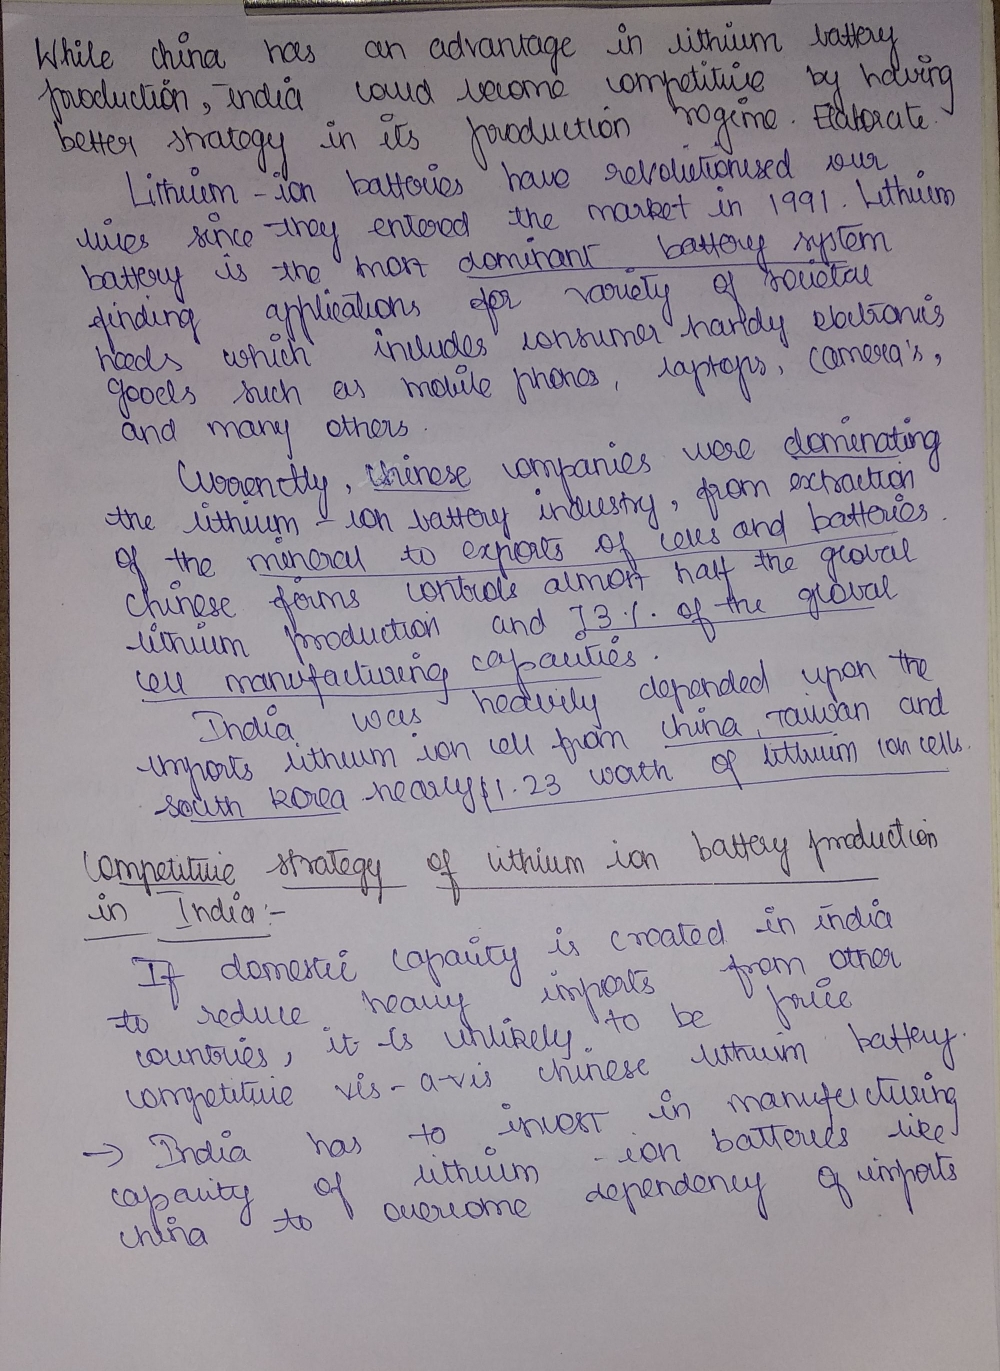 While china has an advantage in lithium battery
production, india could become competitive by having
better strategy in its production regime. Elaborate.
Lithium-ion batteries have revolutionised our
lives since they entered the market in 1991. Lithium
battery is the most dominant battery system
finding applications for variety of societal
needs which includes consumer handy electronis
goods such as mobile phones, laptops, camera's,
and many others.
Currently, chinese companies were dominating
the lithium-ion battery industry, from extraction
of the mineral to exports of cells and batteries.
chinese firms controls almost half the global
lithium production and 73% of the global
cell manufacturing capacities.
India was heavily depended upon the
imports lithium ion cell from china, Taiwan and
south Korea nearly $1.23 worth of lithium ion cells.
Competitive strategy of lithium ion battery production
in India:-
If domestic capacity is created in india
to reduce heavy imports from other
countries, it is unlikely to be price
competitive vis-a-vis chinese lithium battery.
→ India has to invest in manufacturing
capacity of lithium-ion batteries like
china to overcome dependency of imports